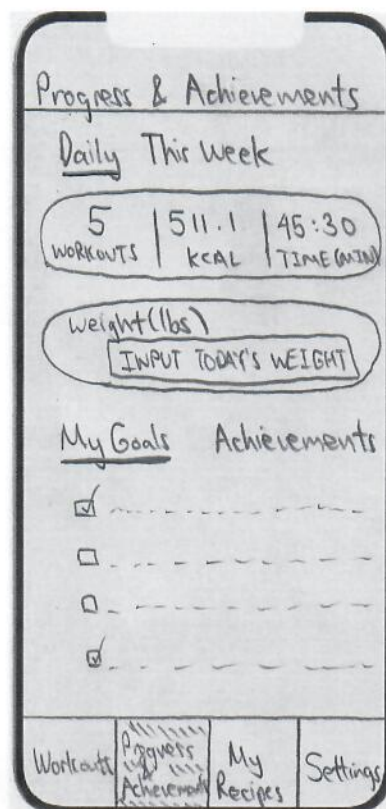 Progress & Achievements
Daily This Week
5 511.1 45:30
WORKOUTS KCAL TIME (MIN)
weight (lbs)
INPUT TODAY'S WEIGHT
My Goals Achievements
Workouts Progress & Achievement My Recipes Settings